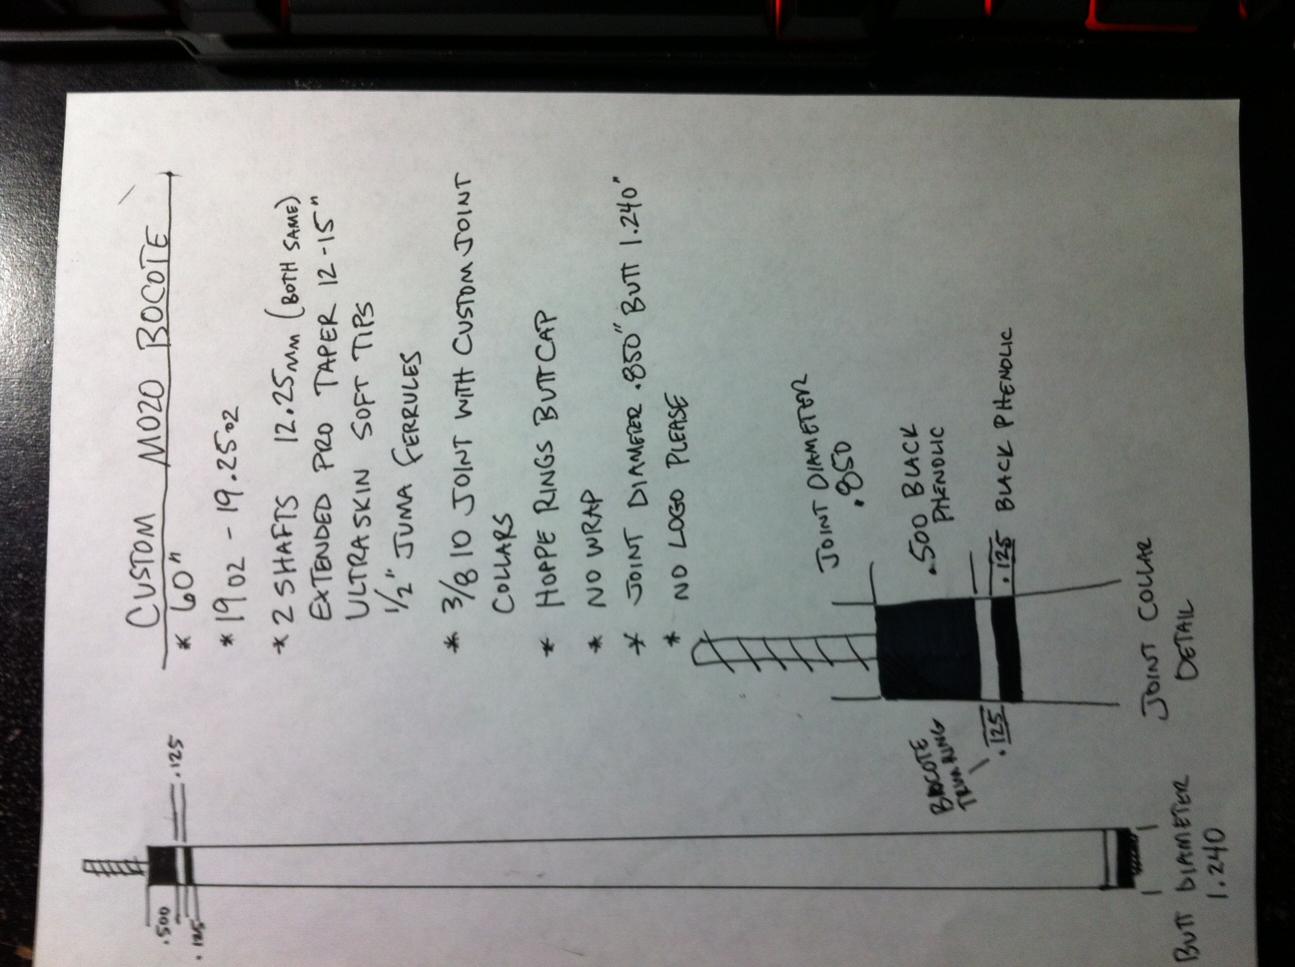 CUSTOM MOZO BOCOTE
* 60"
* 19 OZ - 19.25OZ
* 2 SHAFTS 12.25MM (BOTH SAME)
EXTENDED PRO TAPER 12-15"
ULTRASKIN SOFT TIPS
1/2" JUMA FERRULES
* 3/8 10 JOINT WITH CUSTOM JOINT
COLLARS
* HOPPE RINGS BUTT CAP
* NO WRAP
* JOINT DIAMETER .850" BUTT 1.240"
* NO LOGO PLEASE
.500
.125
.125
JOINT DIAMETER
.850
.500 BLACK
PHENOLIC
.125 BLACK PHENOLIC
BOCOTE
.125
JOINT COLLAR
DETAIL
BUTT DIAMETER
1.240